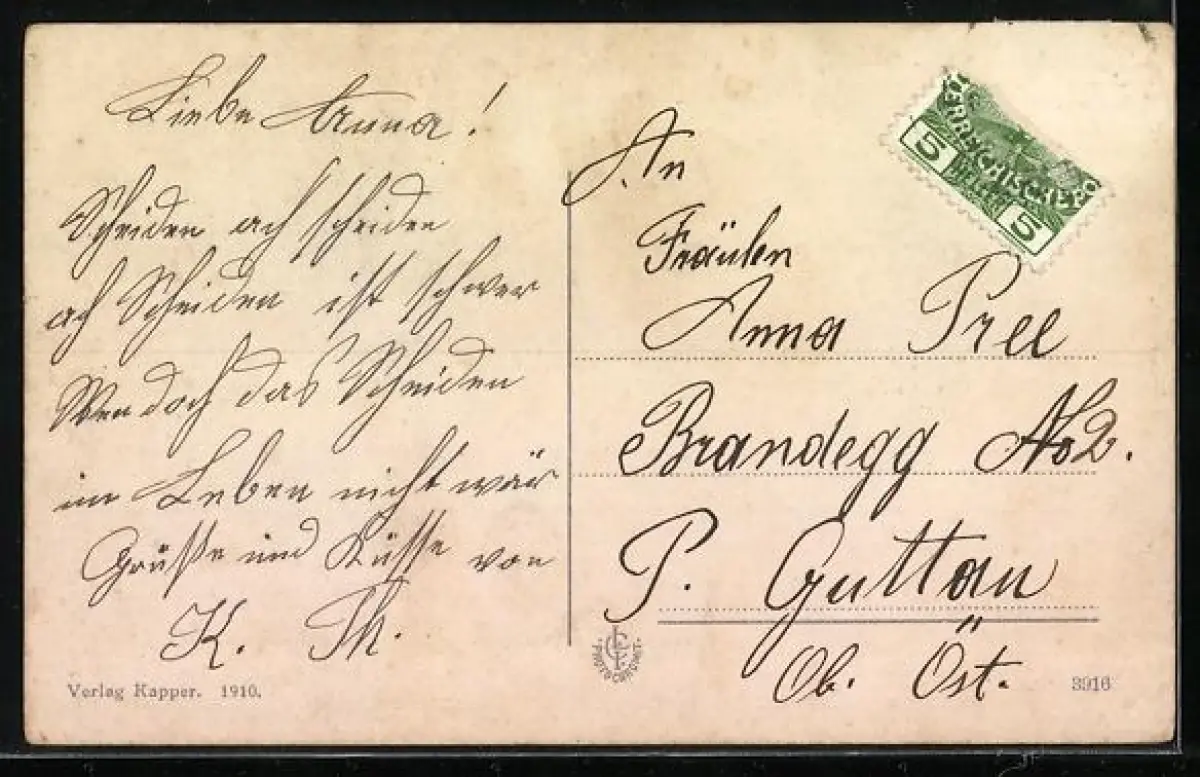 Liebe Anna!
Scheiden ach scheiden
ach Scheiden ist schwer
Wen doch das Scheiden
im Leben nicht wär
Grüße und Küsse von
K. Th.
Verlag Kapper. 1910.
An
Fräulen
Anna Pree
Brandegg No 2.
P. Guttau
Ob. Öst.
3916
5
5